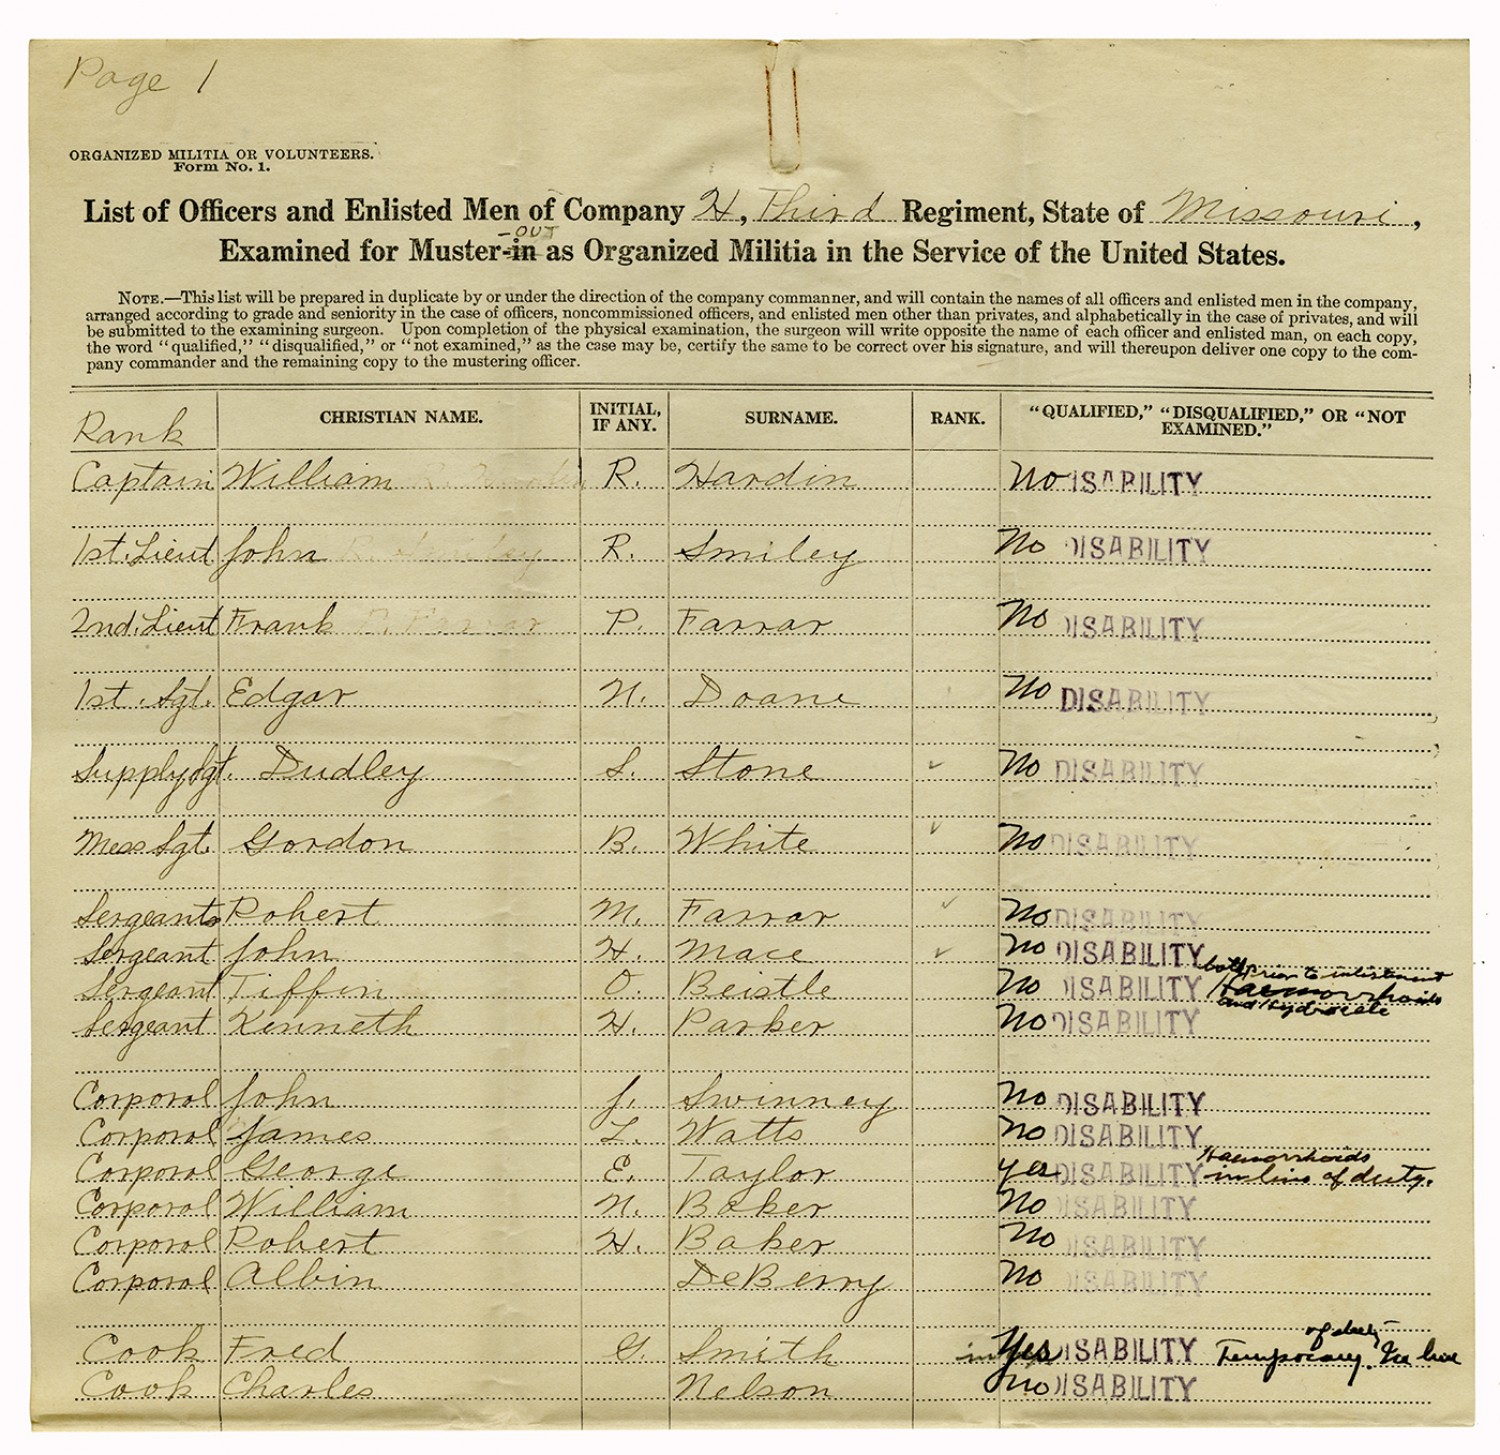 Page 1
ORGANIZED MILITIA OR VOLUNTEERS.
Form No. 1.
List of Officers and Enlisted Men of Company H, Third Regiment, State of Missouri,
-OUT
Examined for Muster-in as Organized Militia in the Service of the United States.
NOTE.—This list will be prepared in duplicate by or under the direction of the company commanner, and will contain the names of all officers and enlisted men in the company,
arranged according to grade and seniority in the case of officers, noncommissioned officers, and enlisted men other than privates, and alphabetically in the case of privates, and will
be submitted to the examining surgeon. Upon completion of the physical examination, the surgeon will write opposite the name of each officer and enlisted man, on each copy,
the word "qualified," "disqualified," or "not examined," as the case may be, certify the same to be correct over his signature, and will thereupon deliver one copy to the com-
pany commander and the remaining copy to the mustering officer.
Rank CHRISTIAN NAME. INITIAL, IF ANY. SURNAME. RANK. "QUALIFIED," "DISQUALIFIED," OR "NOT EXAMINED."
Captain William R. Hardin No DISABILITY
1st. Lieut John R. Smiley No DISABILITY
2nd. Lieut Frank P. Farrar No DISABILITY
1st. Sgt. Edgar N. Doane No DISABILITY
Supply Sgt. Dudley S. Stone No DISABILITY
Mess Sgt. Gordon B. White No DISABILITY
Sergeants Robert M. Farrar No DISABILITY
Sergeant John H. Mace No DISABILITY
Sergeant Tiffin O. Beistle No DISABILITY both prior to enlistment Haemorrhoids and Hydrocele
Sergeant Kenneth H. Parker No DISABILITY
Corporal John J. Swinney No DISABILITY
Corporal James L. Watts No DISABILITY
Corporal George E. Taylor yes DISABILITY Haemorrhoids in line of duty.
Corporal William N. Baker No DISABILITY
Corporal Robert H. Baker No DISABILITY
Corporal Albin DeBerry No DISABILITY
Cook Fred G. Smith in Yes DISABILITY Temporary. In line of duty
Cook Charles Nelson no DISABILITY